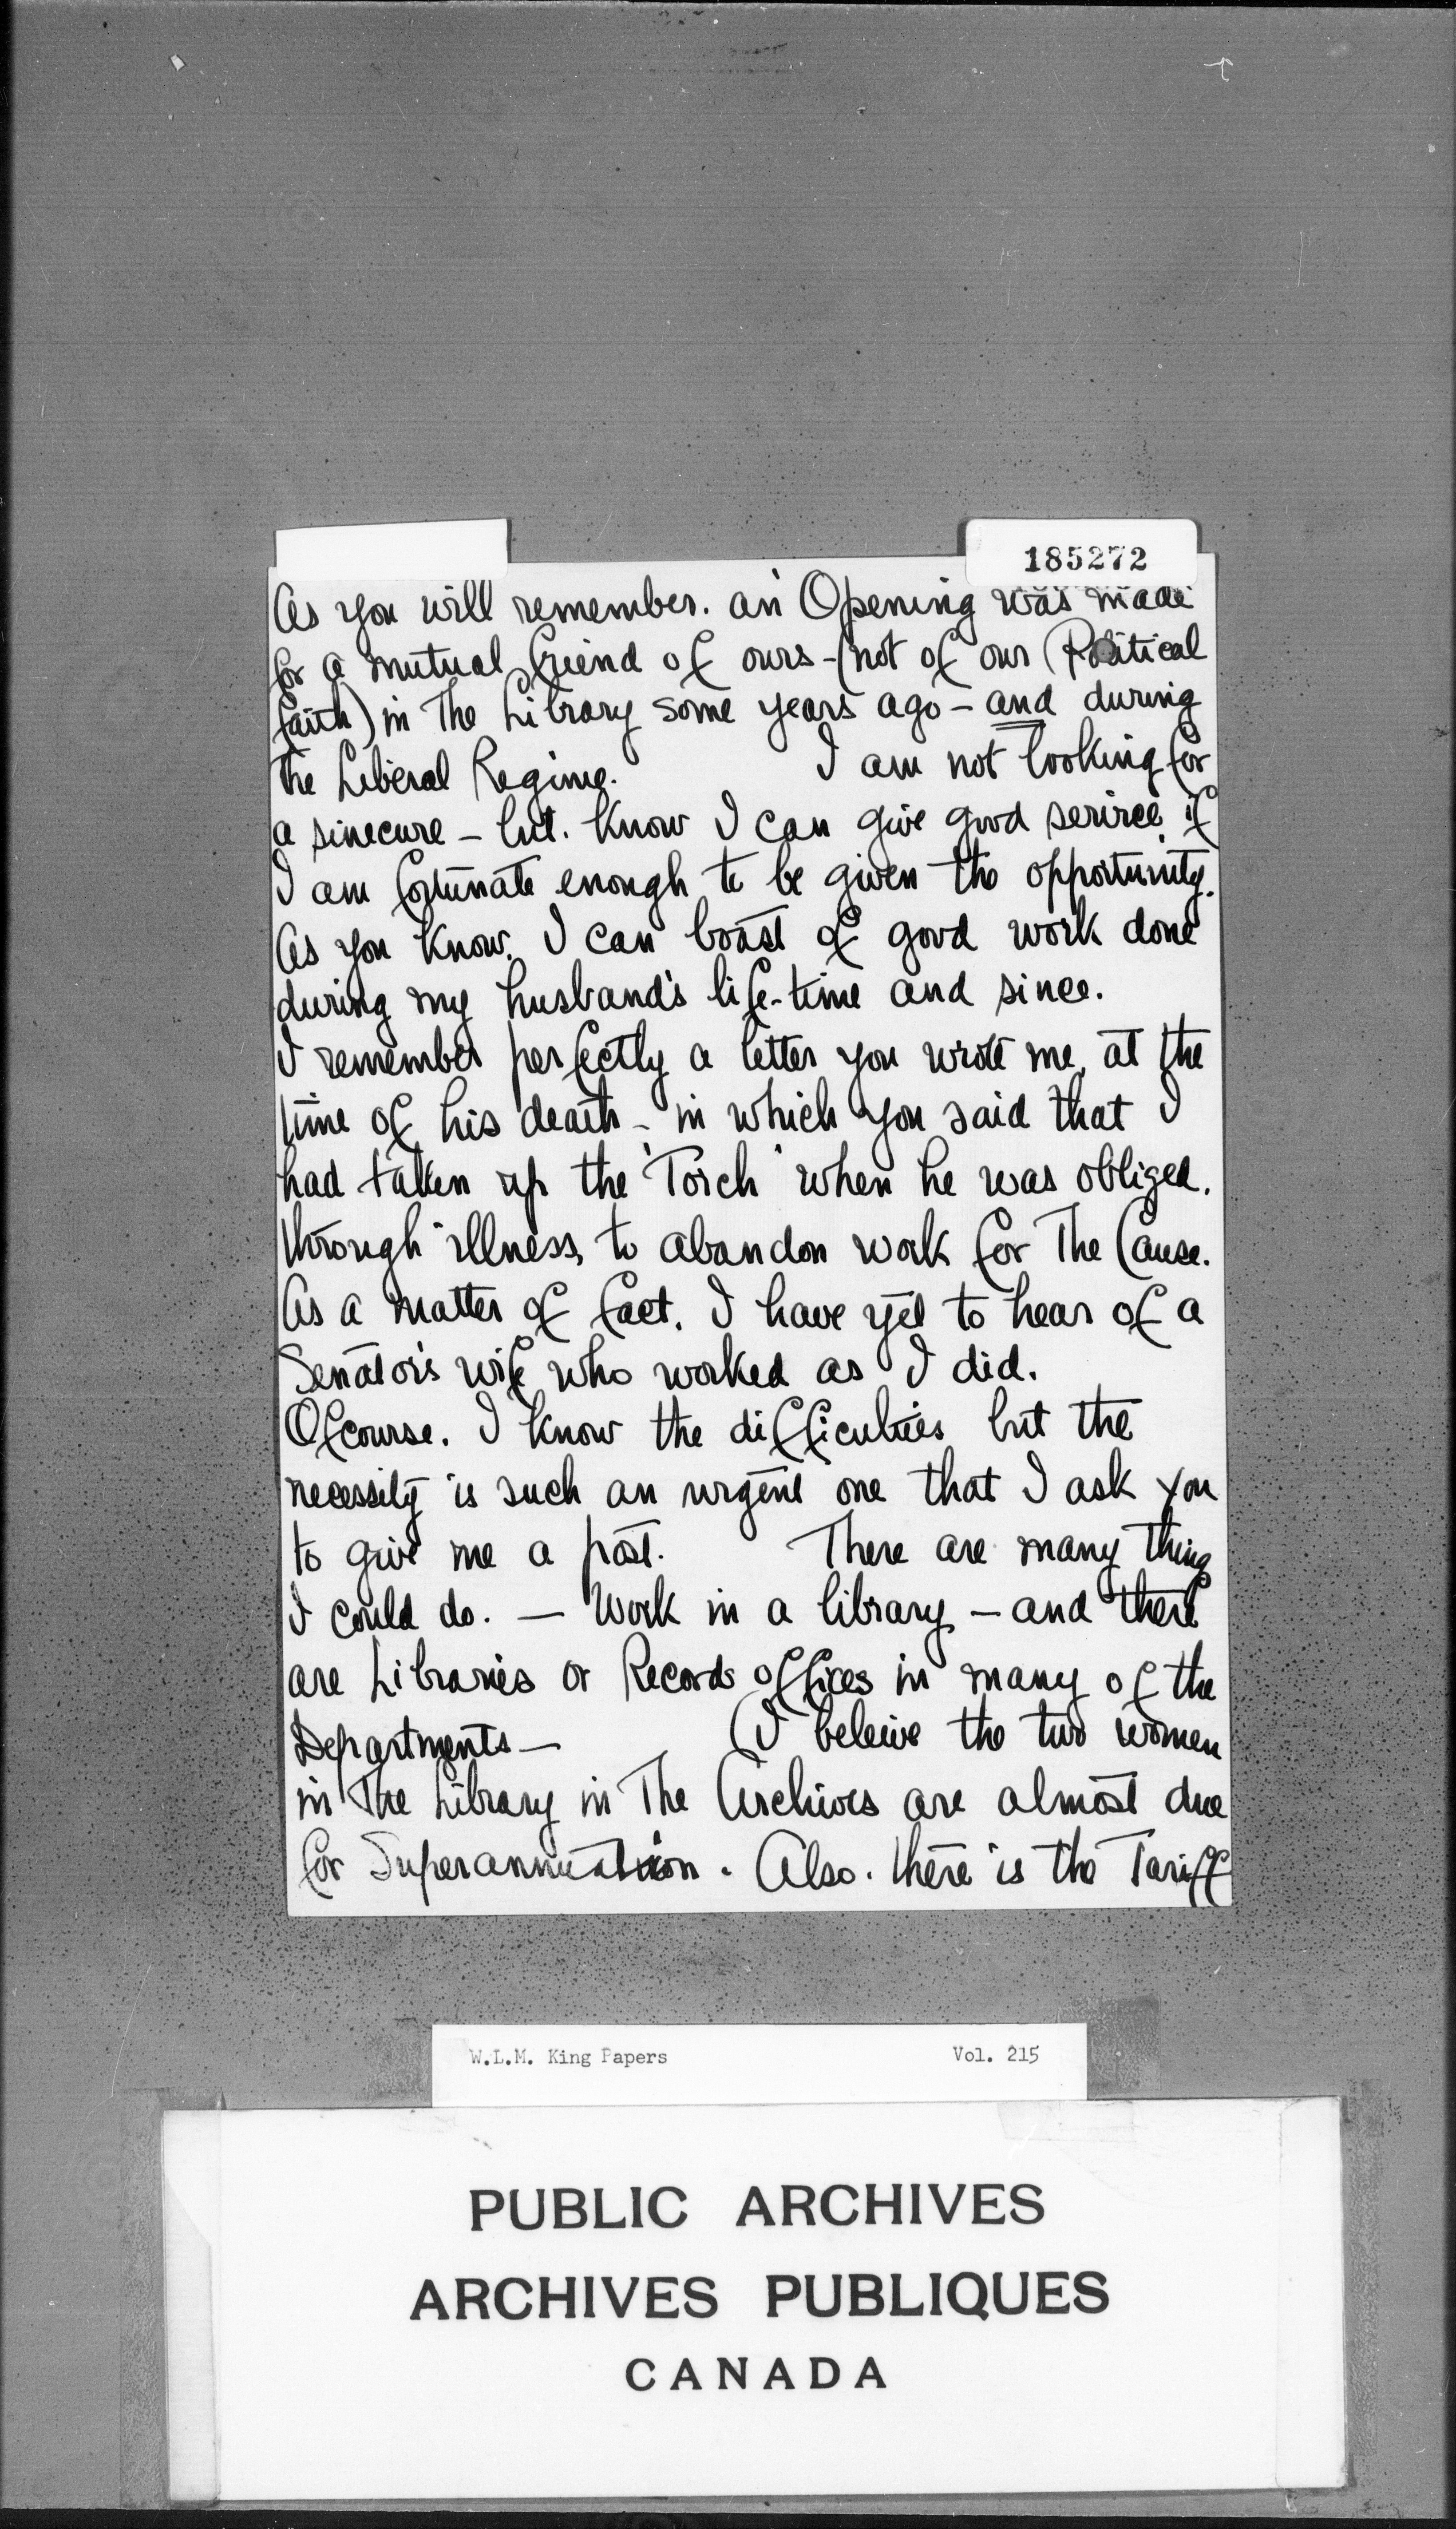 185272
As you will remember. an Opening was made
for a mutual friend of ours - (not of our Political
faith) in The Library some years ago - and during
the Liberal Regime. I am not looking for
a sinecure - but. know I can give good serirce, if
I am fortunate enough to be given the opportunity.
As you know, I can boast of good work done
during my husband's life-time and since.
I remember perfectly a letter you wrote me, at the
time of his death - in which you said that I
had taken up the 'Torch' when he was obliged.
through illness, to abandon work for The Cause.
As a matter of fact, I have yet to hear of a
Senator's wife who worked as I did.
Ofcourse. I know the difficulties but the
necessity is such an urgent one that I ask you
to give me a post. There are many thing
I could do. - Work in a library - and there
are Libraries or Records offices in many of the
Departments - (I beleive the two women
in The Library in The Archives are almost due
for Superannuation. Also. there is the Tariff
W.L.M. King Papers Vol. 215
PUBLIC ARCHIVES
ARCHIVES PUBLIQUES
CANADA